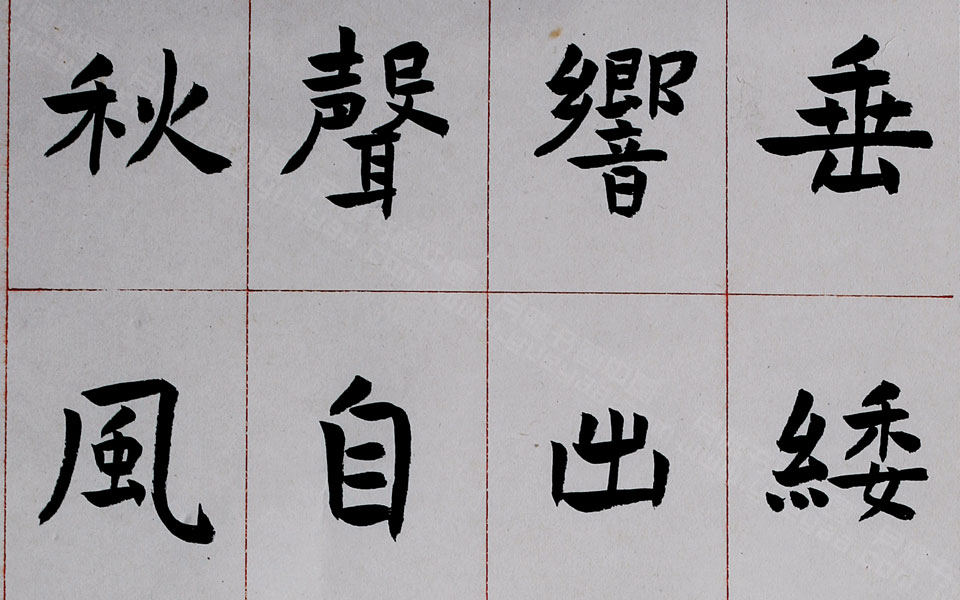 垂緌
響出
聲自
秋風